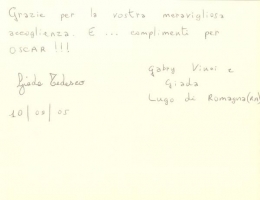 Grazie per la vostra meravigliosa
accoglienza. E ... complimenti per
OSCAR !!!
Giada Tedesco
Gabry Vinci e
Giada
Lugo di Romagna (RA)
10/08/05